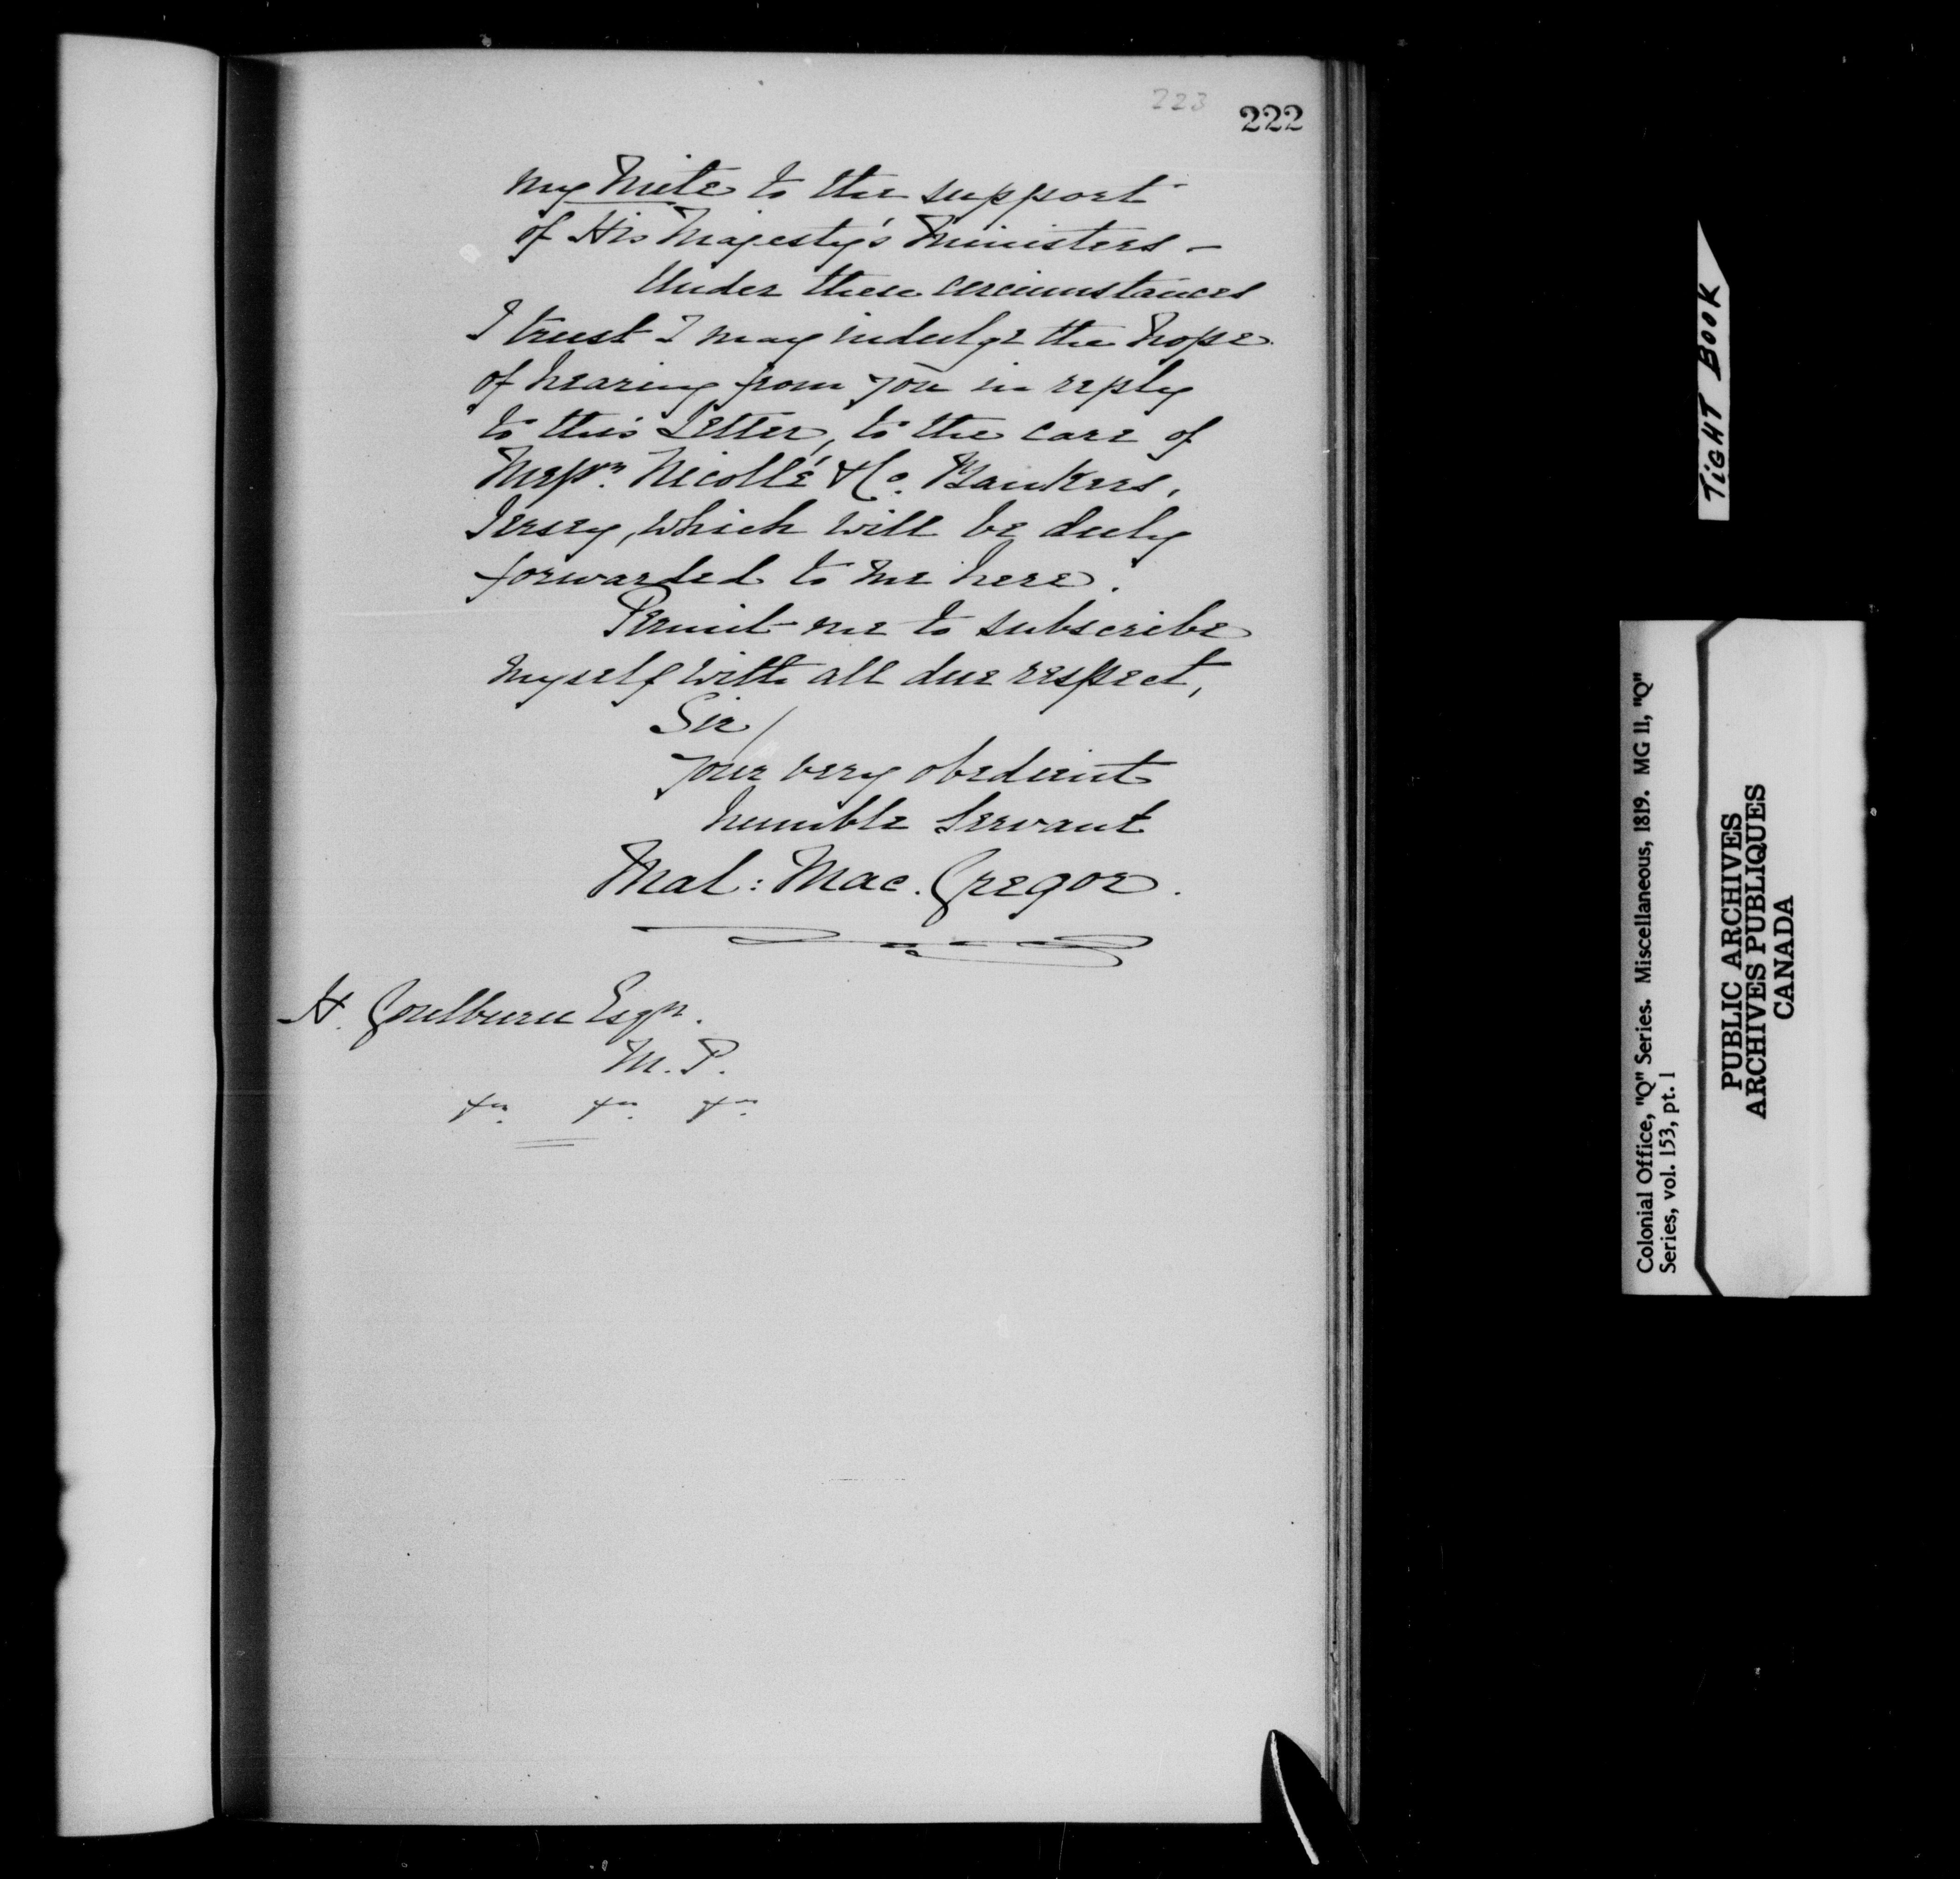 223
222
my Mite to the support
of His Majesty's Ministers -
Under these circumstances
I trust I may indulge the hope
of hearing from you in reply
to this Letter, to the care of
Messrs. Nicolle & Co. Bankers,
Jersey, which will be duly
forwarded to me here.
Permit me to subscribe
myself with all due respect,
Sir/
your very obedient
humble Servant
Mal: Mac. Gregor.
H. Goulburn Esqr.
M.P.
&c. &c. &c.
TIGHT BOOK
Colonial Office, "Q" Series. Miscellaneous, 1819. MG 11, "Q"
Series, vol. 153, pt. 1
PUBLIC ARCHIVES
ARCHIVES PUBLIQUES
CANADA